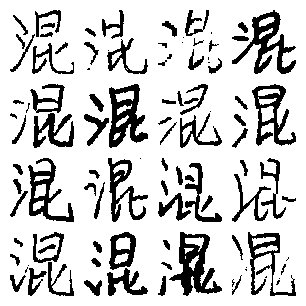 混混混混
混混混混
混混混混
混混混混